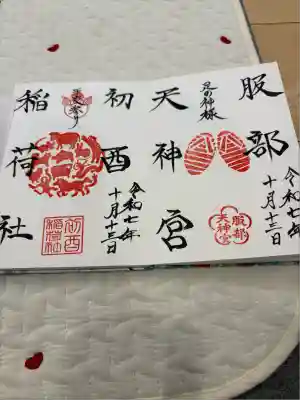 服部
天神宮
足の神様
令和七年
十月十三日
服部
天神宮
初酉
稲荷社
令和七年
十月十三日
初酉
稲荷社